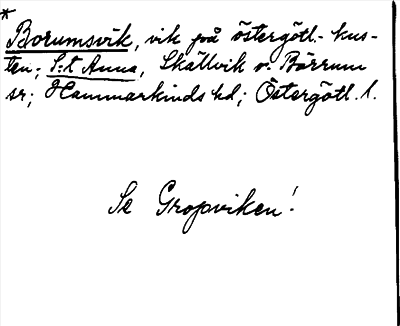 *
Borumsvik, vik på östergötl. kus-
ten; S:t Anna, Skällvik o. Börrum
sr; Hammarkinds hd; Östergötl. l.
Se Gropviken!